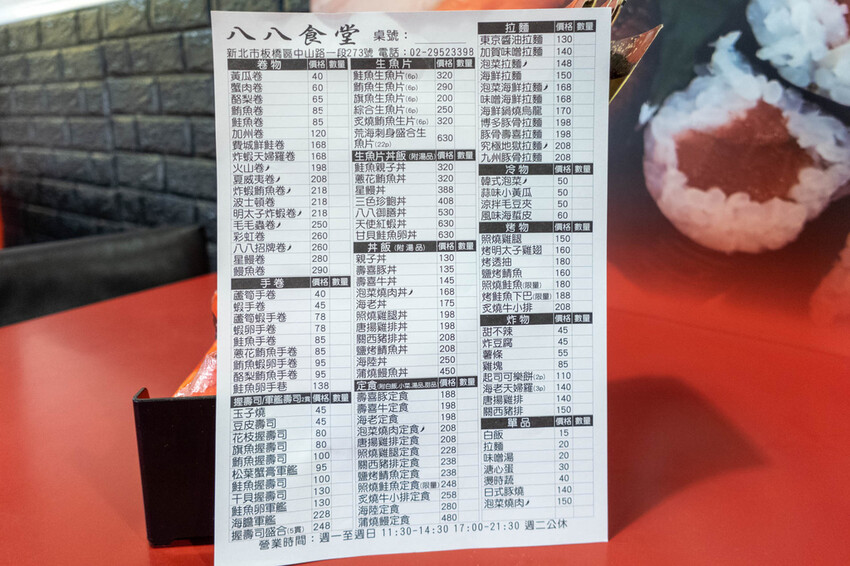 八八食堂 桌號：
新北市板橋區中山路一段273號 電話：02-29523398
卷物 價格 數量
黃瓜卷 40
蟹肉卷 60
酪梨卷 65
鮪魚卷 85
鮭魚卷 85
加州卷 120
費城鮮鮭卷 168
炸蝦天婦羅卷 168
火山卷 198
夏威夷卷 208
炸蝦鮪魚卷 218
波士頓卷 218
明太子炸蝦卷 218
毛毛蟲卷 250
彩虹卷 260
八八招牌卷 260
星鰻卷 280
鰻魚卷 290
手卷 價格 數量
蘆筍手卷 40
蝦手卷 45
蘆筍蝦手卷 78
蝦卵手卷 78
鮭魚手卷 85
蔥花鮪魚手卷 85
鮪魚蝦卵手卷 95
酪梨鮪魚手卷 95
鮭魚卵手巷 138
握壽司/軍艦壽司2貫 價格 數量
玉子燒 45
豆皮壽司 45
花枝握壽司 80
旗魚握壽司 80
鮪魚握壽司 100
松葉蟹膏軍艦 95
鮭魚握壽司 100
干貝握壽司 130
鮭魚卵軍艦 130
海膽軍艦 228
握壽司盛合(5貫) 248
生魚片 價格 數量
鮭魚生魚片(6p) 320
鮪魚生魚片(6p) 290
旗魚生魚片(6p) 200
綜合生魚片(6p) 250
炙燒鮪魚生片(6p) 320
荒海刺身盛合生
魚片(22p) 630
生魚片丼飯(附湯品) 價格 數量
鮭魚親子丼 320
蔥花鮪魚丼 320
星鰻丼 388
三色珍鮑丼 408
八八御膳丼 530
天使紅蝦丼 630
甘貝鮭魚卵丼 630
丼飯(附湯品) 價格 數量
親子丼 130
壽喜豚丼 135
壽喜牛丼 145
泡菜燒肉丼 168
海老丼 175
照燒雞腿丼 198
唐揚雞排丼 198
關西豬排丼 198
鹽烤鯖魚丼 198
海陸丼 250
蒲燒鰻魚丼 450
定食(附白飯,小菜,湯品,甜品) 價格 數量
壽喜豚定食 188
壽喜牛定食 198
海老定食 208
泡菜燒肉定食 208
唐揚雞排定食 208
照燒雞腿定食 228
關西豬排定食 238
鹽烤鯖魚定食 238
照燒鮭魚定食(限量) 248
炙燒牛小排定食 258
海陸定食 280
蒲燒鰻定食 480
拉麵 價格 數量
東京醬油拉麵 130
加賀味噌拉麵 140
泡菜拉麵 148
海鮮拉麵 150
泡菜海鮮拉麵 168
味噌海鮮拉麵 168
海鮮鍋燒烏龍 170
博多豚骨拉麵 198
豚骨壽喜拉麵 198
究極地獄拉麵 208
九州豚骨拉麵 208
冷物 價格 數量
韓式泡菜 50
蒜味小黃瓜 50
涼拌毛豆夾 50
風味海蜇皮 60
烤物 價格 數量
照燒雞腿 150
烤明太子雞翅 160
烤透抽 180
鹽烤鯖魚 160
照燒鮭魚(限量) 180
烤鮭魚下巴(限量) 188
炙燒牛小排 208
炸物 價格 數量
甜不辣 45
炸豆腐 45
薯條 55
雞塊 85
起司可樂餅(2p) 110
海老天婦羅(3p) 140
唐揚雞排 140
關西豬排 150
單品 價格 數量
白飯 15
拉麵 20
味噌湯 20
溏心蛋 30
燙時蔬 40
日式豚燒 140
泡菜燒肉 150
營業時間：週一至週日 11:30-14:30 17:00-21:30 週二公休